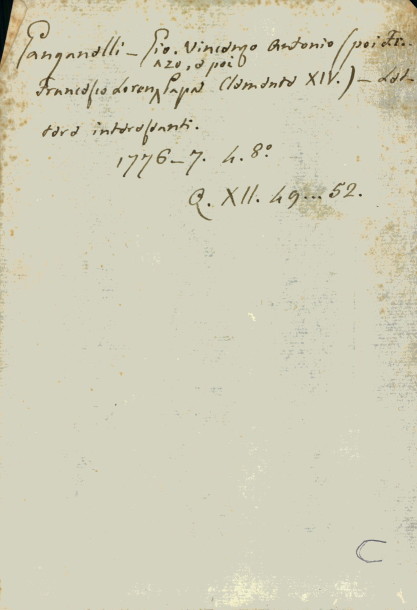 Ganganelli - Gio. Vincenzo Antonio (poi Fr.
azo, e poi
Francesco Loren Papa Clemente XIV.) - Let-
tere interessanti.
1776-7. 4. 8º
Q. XII. 49...52.
C